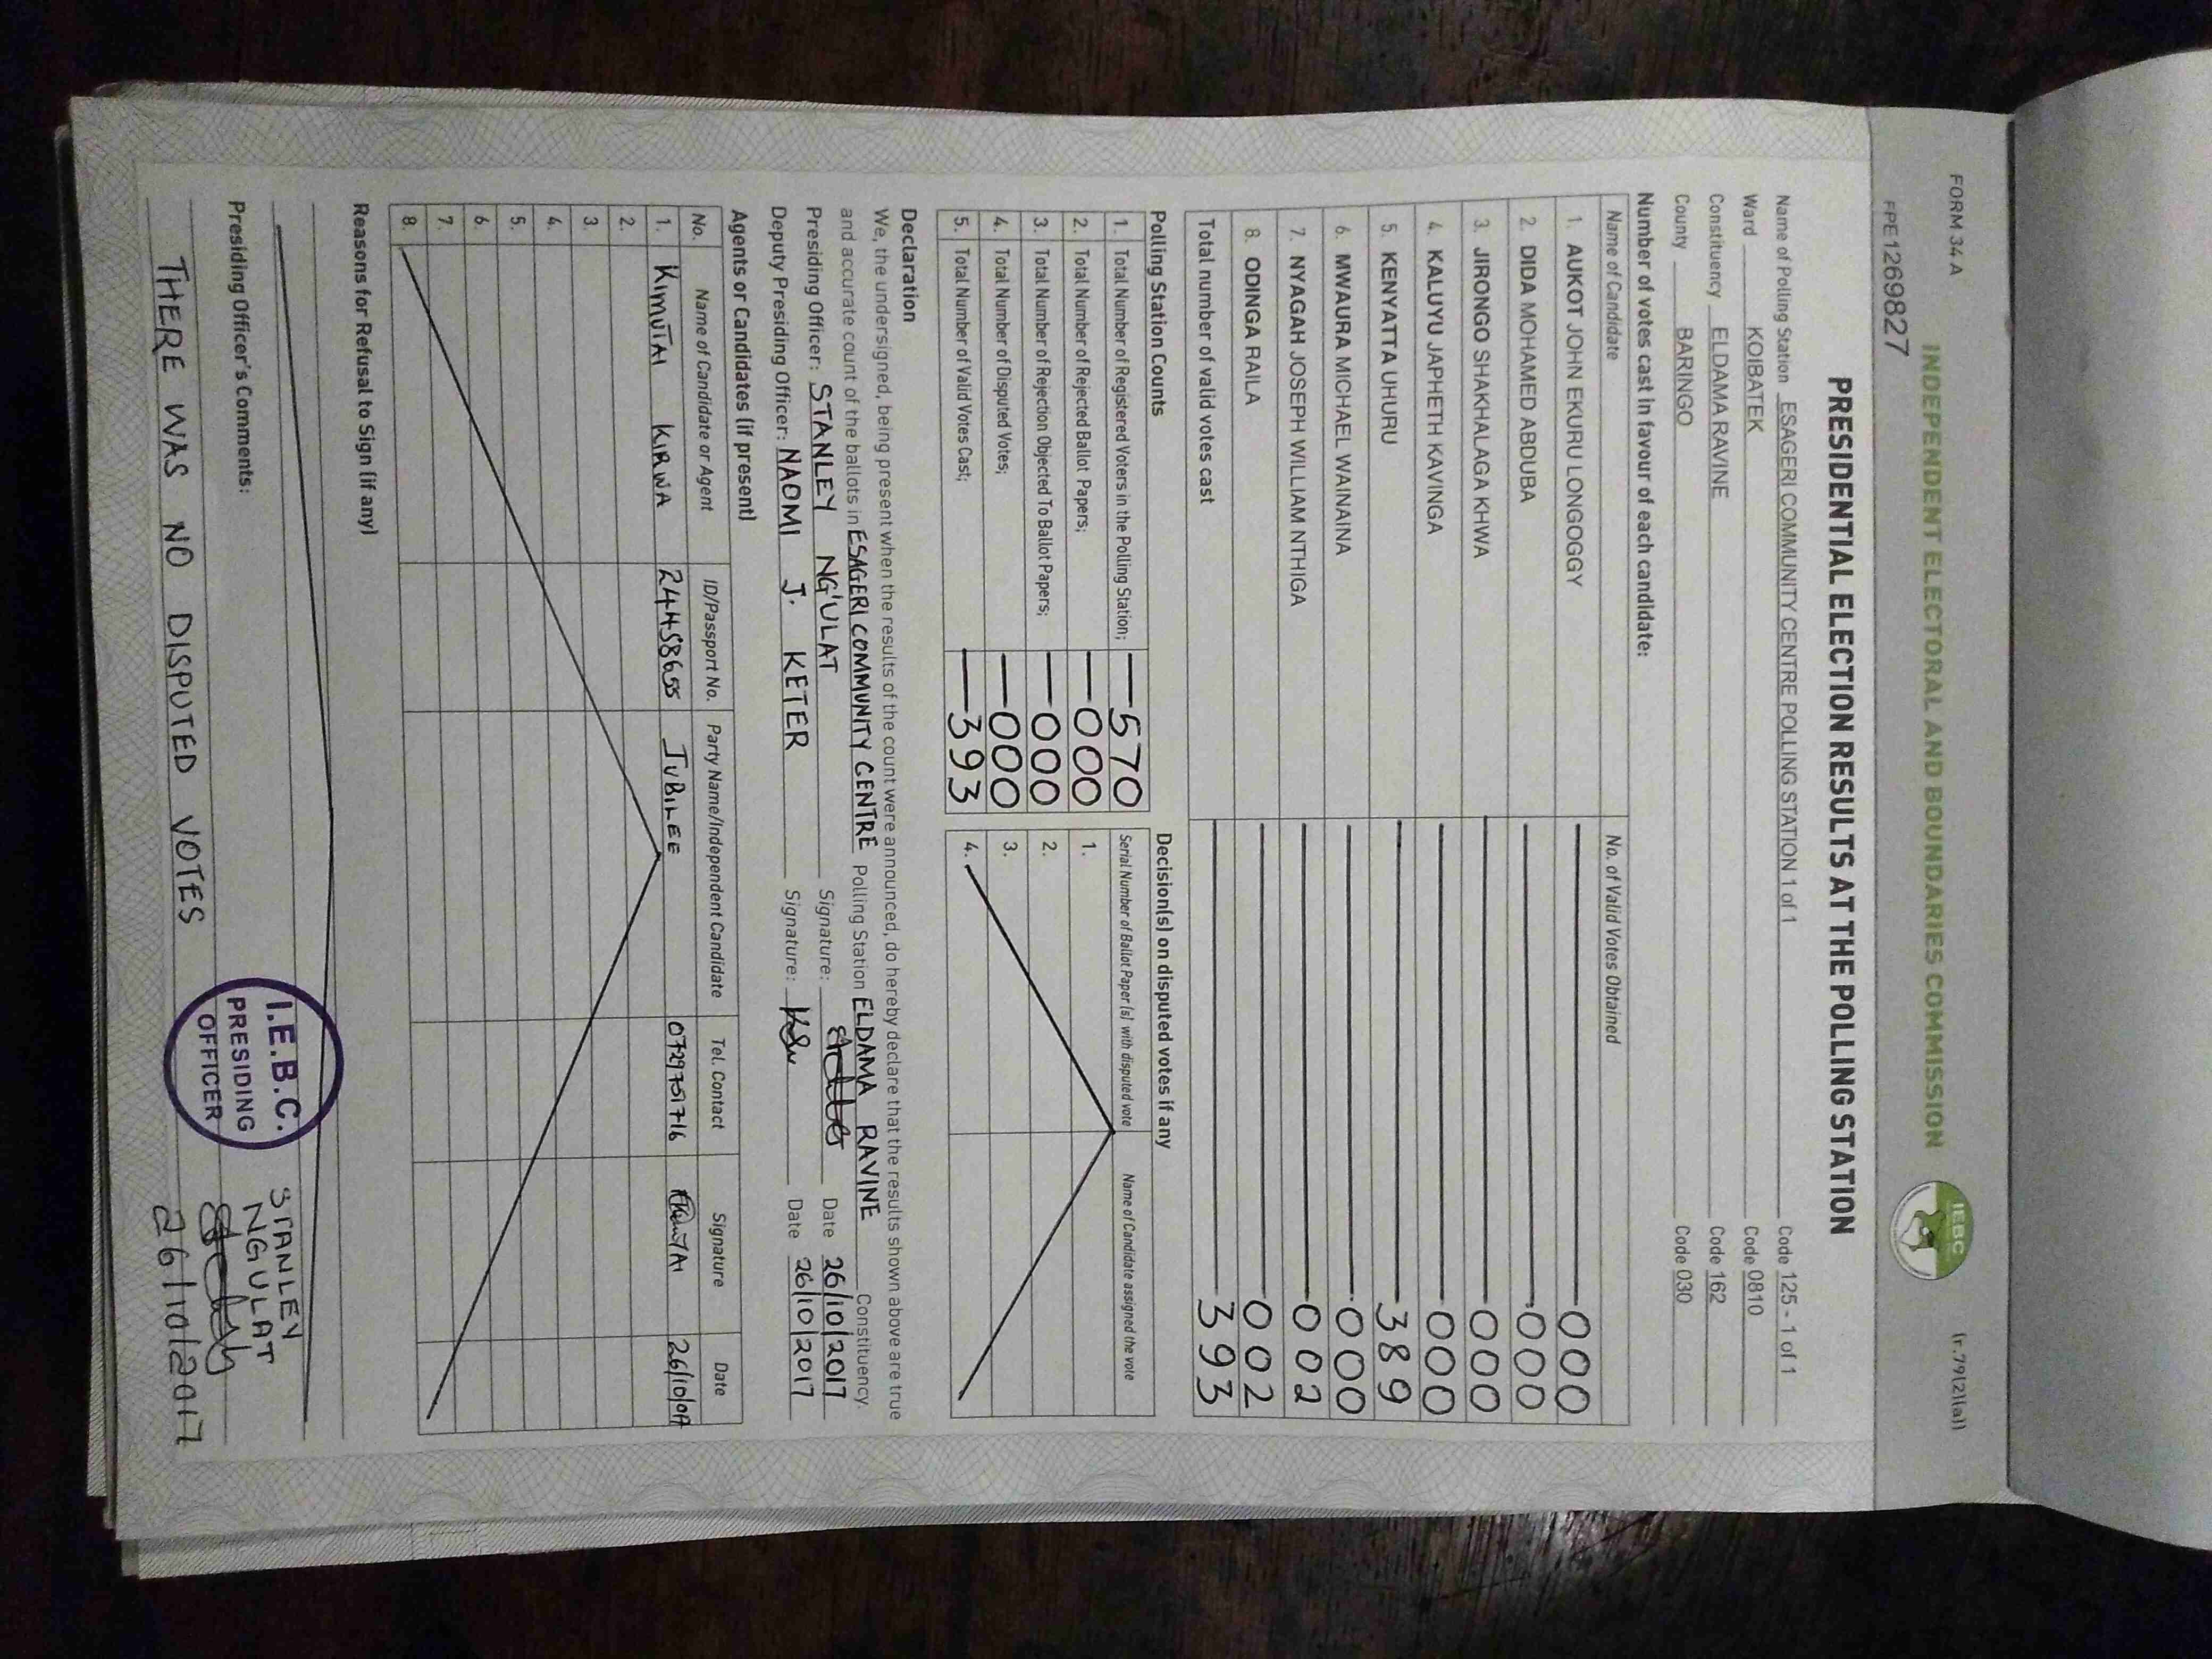 FORM 34 A
(r.79(2)(a))
INDEPENDENT ELECTORAL AND BOUNDARIES COMMISSION
IEBC
FPE1269827
PRESIDENTIAL ELECTION RESULTS AT THE POLLING STATION
Name of Polling Station ESAGERI COMMUNITY CENTRE POLLING STATION 1 of 1 Code 125 - 1 of 1
Ward KOIBATEK Code 0810
Constituency ELDAMA RAVINE Code 162
County BARINGO Code 030
Number of votes cast in favour of each candidate:
Name of Candidate No. of Valid Votes Obtained
1. AUKOT JOHN EKURU LONGOGGY 000
2. DIDA MOHAMED ABDUBA 000
3. JIRONGO SHAKHALAGA KHWA 000
4. KALUYU JAPHETH KAVINGA 000
5. KENYATTA UHURU 389
6. MWAURA MICHAEL WAINAINA 000
7. NYAGAH JOSEPH WILLIAM NTHIGA 002
8. ODINGA RAILA 002
Total number of valid votes cast 393
Polling Station Counts
1. Total Number of Registered Voters in the Polling Station; 570
2. Total Number of Rejected Ballot Papers; 000
3. Total Number of Rejection Objected To Ballot Papers; 000
4. Total Number of Disputed Votes; 000
5. Total Number of Valid Votes Cast; 393
Decision(s) on disputed votes if any
Serial Number of Ballot Paper (s) with disputed vote Name of Candidate assigned the vote
1.
2.
3.
4.
Declaration
We, the undersigned, being present when the results of the count were announced, do hereby declare that the results shown above are true
and accurate count of the ballots in ESAGERI COMMUNITY CENTRE Polling Station ELDAMA RAVINE Constituency.
Presiding Officer: STANLEY NG'ULAT Signature: Date 26/10/2017
Deputy Presiding Officer: NAOMI J. KETER Signature: Date 26/10/2017
Agents or Candidates (if present)
No. Name of Candidate or Agent ID/Passport No. Party Name/Independent Candidate Tel. Contact Signature Date
1. KIMUTAI KIRWA 24458655 JUBILEE 0729751716 26/10/017
2.
3.
4.
5.
6.
7.
8.
Reasons for Refusal to Sign (if any)
Presiding Officer's Comments:
THERE WAS NO DISPUTED VOTES
I.E.B.C.
PRESIDING
OFFICER
STANLEY
NGULAT
26/10/2017